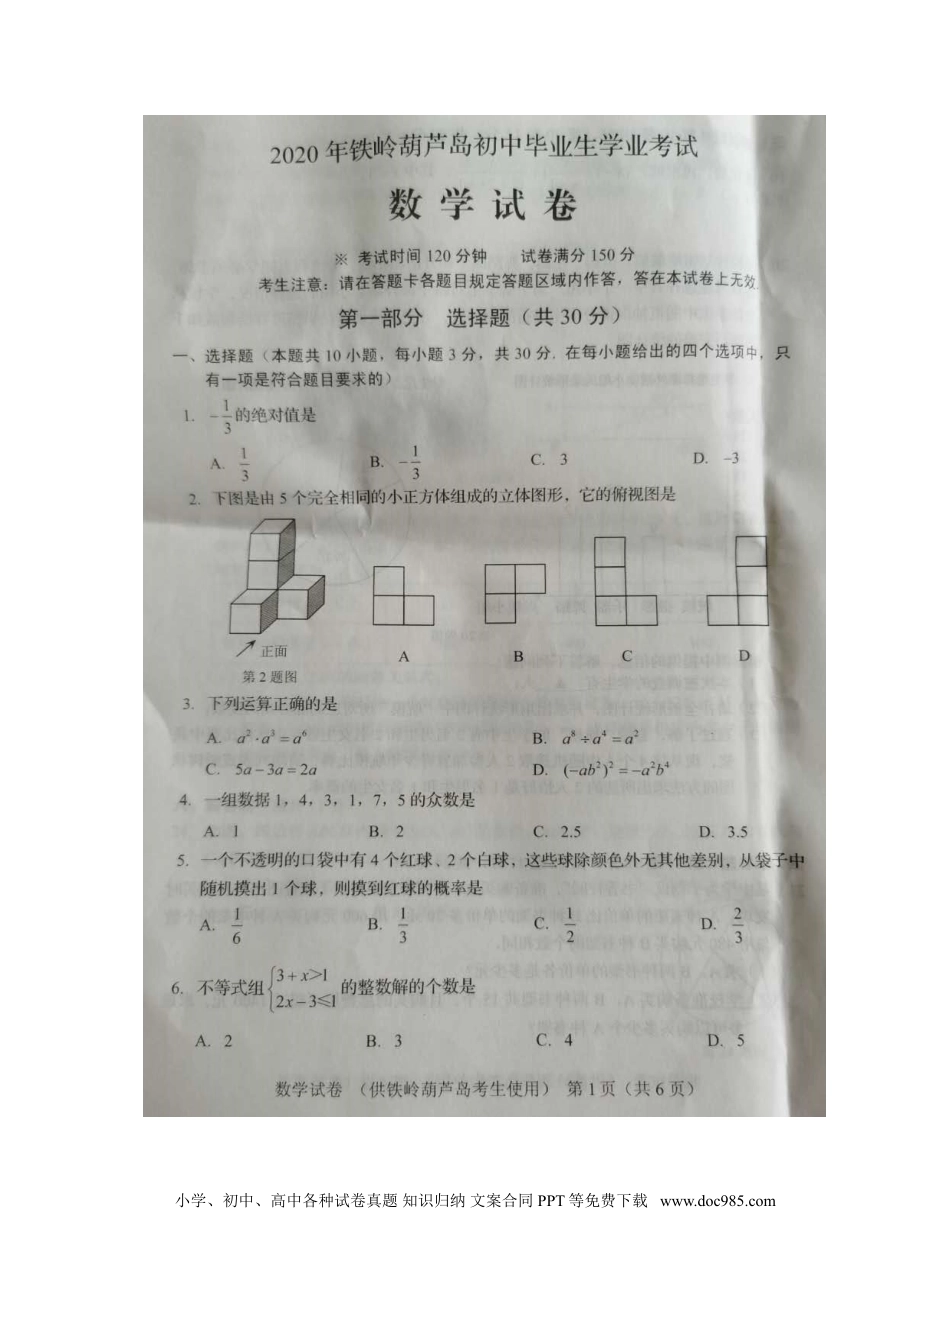 2020 年铁岭葫芦岛初中毕业生学业考试
数 学 试 卷
※ 考试时间 120 分钟 试卷满分 150 分
考生注意：请在答题卡各题目规定答题区域内作答，答在本试卷上无效.
第一部分 选择题（共 30 分）
一、选择题（本题共 10 小题，每小题 3 分，共 30 分. 在每小题给出的四个选项中，只
有一项是符合题目要求的）
1. -1/3 的绝对值是
A. 1/3 B. -1/3 C. 3 D. -3
2. 下图是由 5 个完全相同的小正方体组成的立体图形，它的俯视图是
正面
A B C D
第 2 题图
3. 下列运算正确的是
A. a²·a³=a⁶ B. a⁸÷a⁴=a²
C. 5a-3a=2a D. (-ab²)²=-a²b⁴
4. 一组数据 1，4，3，1，7，5 的众数是
A. 1 B. 2 C. 2.5 D. 3.5
5. 一个不透明的口袋中有 4 个红球、2 个白球，这些球除颜色外无其他差别，从袋子中
随机摸出 1 个球，则摸到红球的概率是
A. 1/6 B. 1/3 C. 1/2 D. 2/3
6. 不等式组 { 3+x>1 2x-3≤1 的整数解的个数是
A. 2 B. 3 C. 4 D. 5
数学试卷 （供铁岭葫芦岛考生使用） 第 1 页（共 6 页）
小学、初中、高中各种试卷真题 知识归纳 文案合同 PPT 等免费下载 www.doc985.com